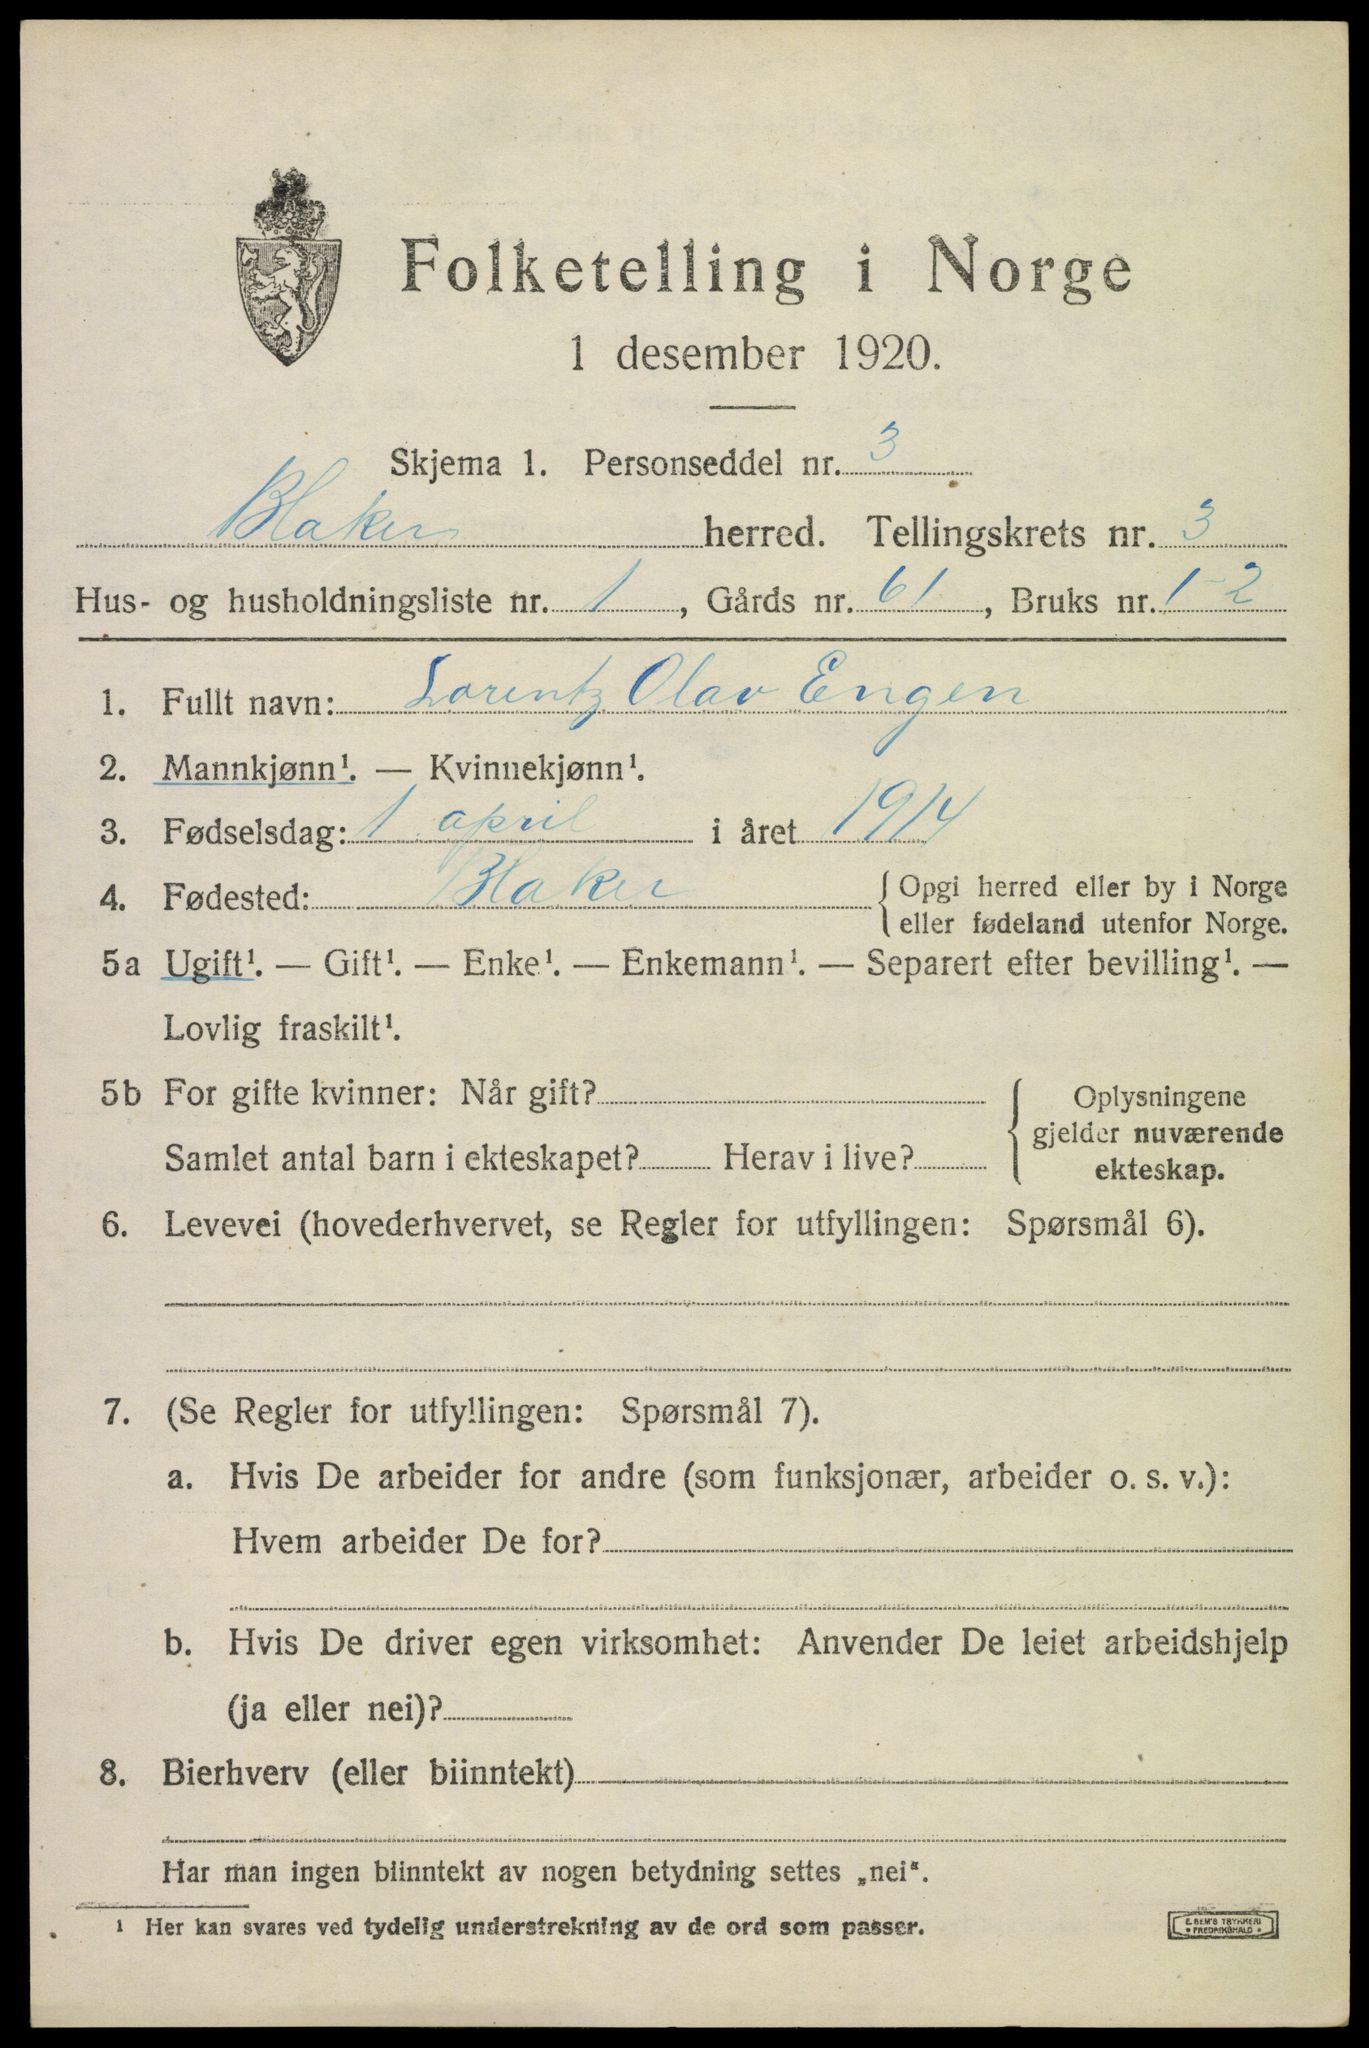 Folketelling i Norge
1 desember 1920.
Skjema 1. Personseddel nr. 3
Blaker herred. Tellingskrets nr. 3
Hus- og husholdningsliste nr. 1, Gårds nr. 61, Bruks nr. 1-2
1. Fullt navn: Lorentz Olav Engen
2. Mannkjønn¹. — Kvinnekjønn¹.
3. Fødselsdag: 1 april i året 1914
4. Fødested: Blaker { Opgi herred eller by i Norge
eller fødeland utenfor Norge.
5a Ugift¹. — Gift¹. — Enke¹. — Enkemann¹. — Separert efter bevilling¹. —
Lovlig fraskilt¹.
5b For gifte kvinner: Når gift?
Samlet antal barn i ekteskapet? Herav i live?
{ Oplysningene
gjelder nuværende
ekteskap.
6. Levevei (hovederhvervet, se Regler for utfyllingen: Spørsmål 6).
7. (Se Regler for utfyllingen: Spørsmål 7).
a. Hvis De arbeider for andre (som funksjonær, arbeider o. s. v.):
Hvem arbeider De for?
b. Hvis De driver egen virksomhet: Anvender De leiet arbeidshjelp
(ja eller nei)?
8. Bierhverv (eller biinntekt)
Har man ingen biinntekt av nogen betydning settes „nei“.
¹ Her kan svares ved tydelig understrekning av de ord som passer.
E. SEM'S TRYKKERI
• FREDRIKSHALD •